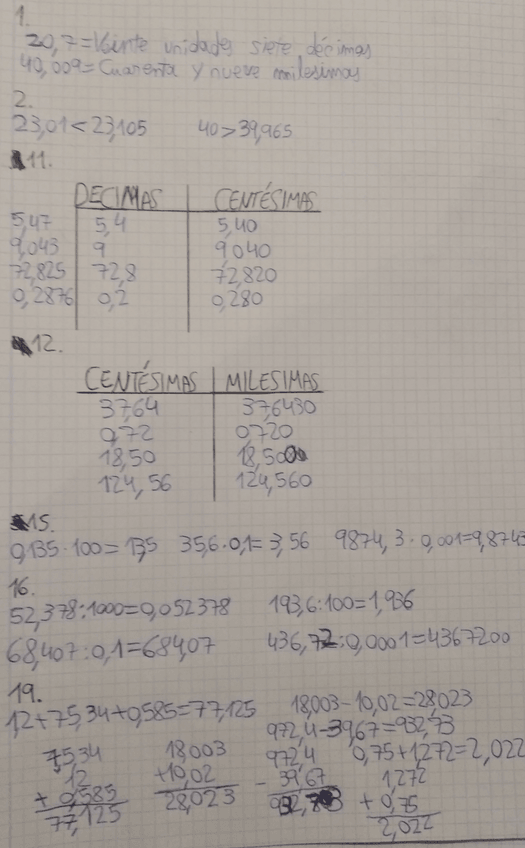 1.
20,7=Veinte unidades siete décimas
40,009=Cuarenta y nueve milesimas
2.
23,01<23,105 40>39,965
11.
DECIMAS CENTÉSIMAS
5,47 5,4 5,40
9,043 9 9,040
72,825 72,8 72,820
0,2876 0,2 0,280
12.
CENTÉSIMAS MILESIMAS
37,64 37,6430
0,72 0,720
18,50 18,500
124,56 124,560
15.
0,135·100=13,5 35,6·0,1=3,56 9874,3·0,001=9,8743
16.
52,378:1000=0,052378 193,6:100=1,936
68,407:0,1=684,07 436,72:0,0001=4367200
19.
1,2+75,34+0,585=77,125 18,003-10,02=28,023
972,4-39,67=932,73
75,34 18,003 972,4 0,75+1,272=2,022
1,2 +10,02 - 39,67 1,272
+ 0,585 28,023 + 0,75
77,125 2,022